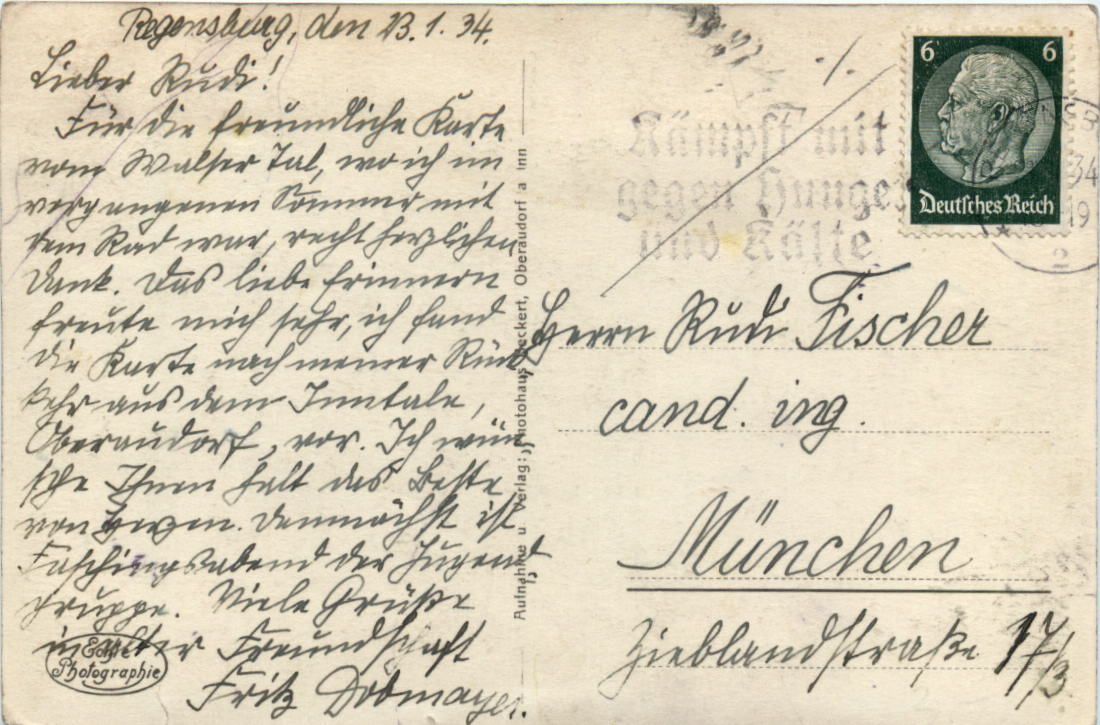 Regensburg, den 23.1.34.
Lieber Rudi!
Für die freundliche Karte
vom Walser Tal, wo ich im
vergangenen Sommer mit
dem Rad war, recht herzlichen
Dank. Das liebe Erinnern
freute mich sehr, ich fand
die Karte nach meiner Rück-
kehr aus dem Inntale,
Oberaudorf, vor. Ich wün-
sche Ihnen halt das Beste
von . Demnächst ist
Faschingsabend der Jugend-
gruppe. Viele Grüße
in alter Freundschaft
Fritz Dobmayer.
Echte
Photographie
Aufnahme u. Verlag: Photohaus eckert, Oberaudorf a Inn
Kämpft mit
gegen Hunger
und Kälte
6 6
Deutsches Reich
34
19
2
Herrn Rudi Fischer
cand. ing.
München
Zieblandstraße 17/3